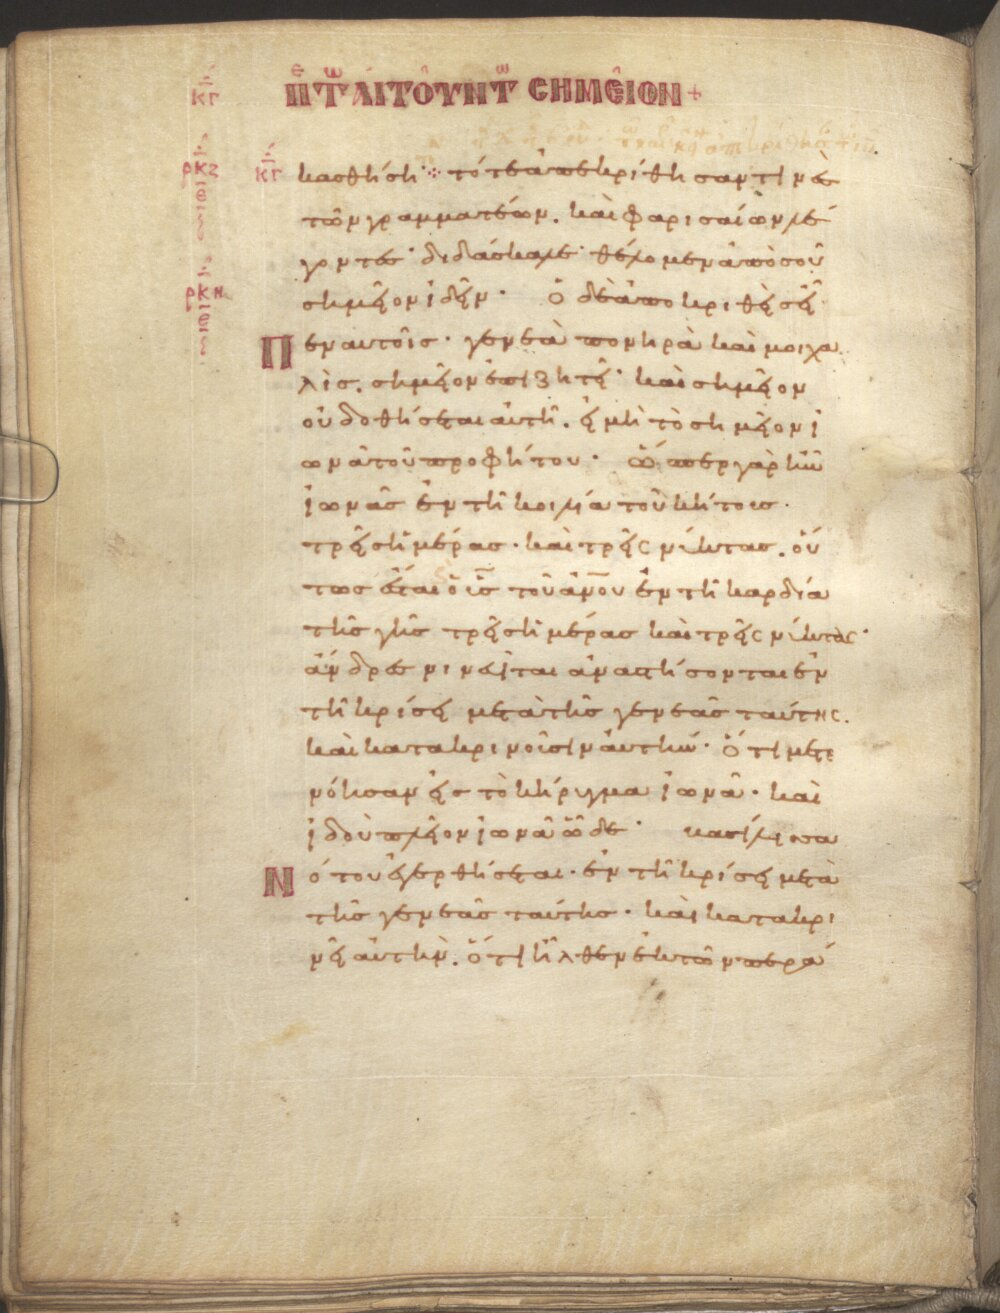 κγ
περὶ τῶν αἰτούντων σημεῖον +
κγ
κασθήση ⁘ τότε ἀπεκρίθησαν τινὲς
ρκζ
ε
τῶν γραμματέων. καὶ φαρισαίων λέ
γοντες· διδάσκαλε· θέλομεν ἀπὸ σοῦ
ρκη
ε
σημεῖον ἰδεῖν· ὁ δὲ ἀποκριθεὶς εἶ
πεν αυτοῖς· γενεὰ πονηρὰ καὶ μοιχα
λὶς. σημεῖον ἐπιζητεῖ· καὶ σημεῖον
οὐ δοθήσεται αὐτῆ. εἰ μὴ τὸ σημεῖον ἰ
ωνᾶ τοῦ προφήτου· ὥσπερ γὰρ ἦν
ἰωνᾶς ἐν τῆ κοιλία τοῦ κήτους·
τρεῖς ἡμέρας· καὶ τρεῖς νύκτας. οὕ
τως ἔσται ὁ υἱς τοῦ ἀνου ἐν τῆ καρδία
τῆς γῆς τρεῖς ἡμέρας καὶ τρεῖς νύκτας·
ἄνδρες νινευῖται ἀναστήσονται ἐν
τῆ κρίσει μετὰ τῆς γενεᾶς ταύτης.
καὶ κατακρινοῦσιν αὐτήν· ὅτι μετε
νόησαν εἰς τὸ κήρυγμα ἰωνᾶ· καὶ
ἰδοὺ πλεῖον ἰωνᾶ ὧδε· βασίλισσα
νότου ἐγερθήσεται· ἐν τῆ κρίσει μετὰ
τῆς γενεᾶς ταύτης· καὶ κατακρι
νεῖ αὐτὴν. ὅτι ἦλθεν ἐκ τῶν περά